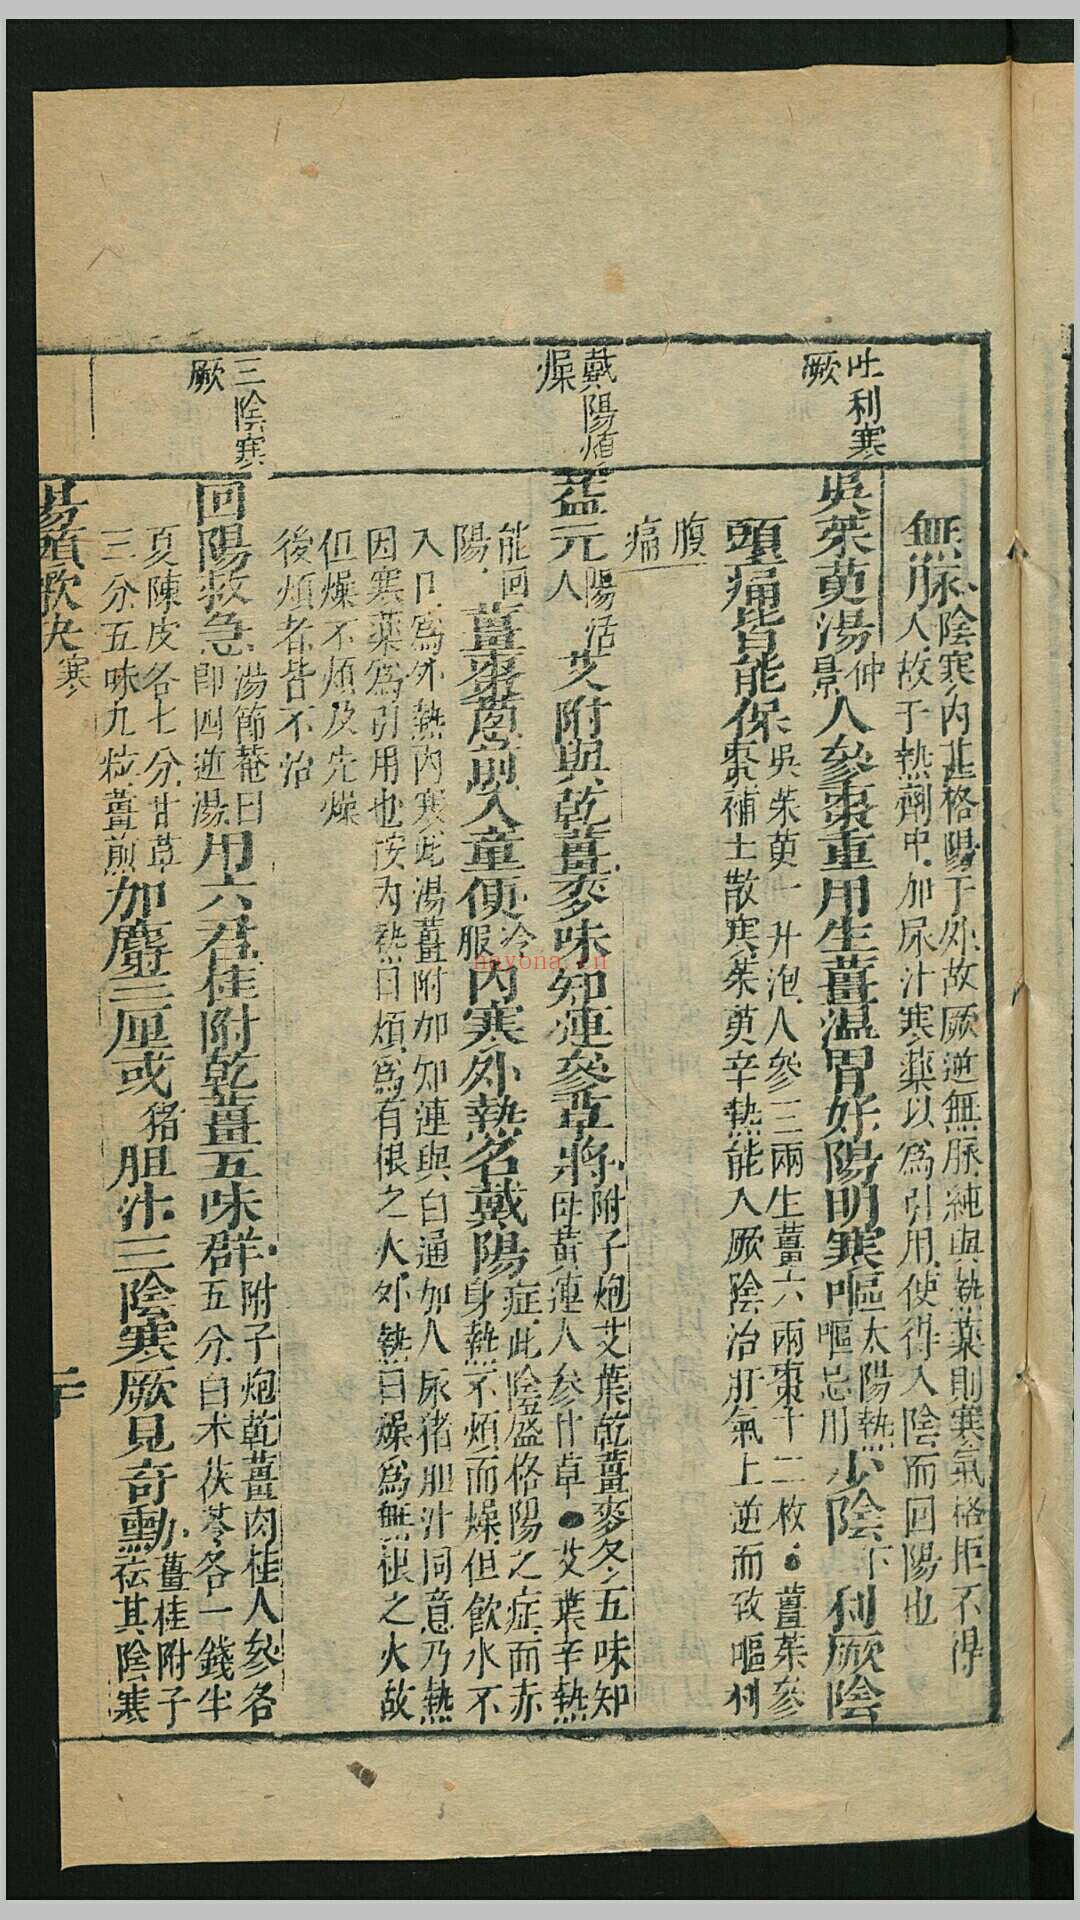 無脉陰寒內甚格陽于外故厥逆無脉純與熱藥則寒氣格拒不得
入故于熱劑中加尿汁寒藥以為引用使得入陰而回陽也
吐利寒
厥
吳茱萸湯仲景人參棗重用生薑溫胃好陽明寒嘔太陽熱嘔忌用少陰下利厥陰
頭痛皆能保吳茱萸一升泡人參三兩生薑六兩棗十二枚●薑茱參
棗補土散寒茱萸辛熱能入厥陰治肝氣上逆而致嘔利
腹
痛
戴陽煩
燥
益元陽活人艾附與乾薑麥味知連參草將附子炮艾葉乾薑麥冬五味知
母黃連人參甘草●艾葉辛熱
能回
陽
薑棗葱煎入童便冷服內寒外熱名戴陽症此陰盛格陽之症面赤
身熱不煩而燥但飲水不
入口為外熱內寒此湯薑附加知連與白通加人尿猪胆汁同意乃熱
因寒藥為引用也按內熱曰煩為有根之火外熱曰燥為無根之火故
但燥不煩及先燥
後煩者皆不治
三陰寒
厥
回陽救急湯節菴曰即四逆湯用六君桂附乾薑五味群附子炮乾薑肉桂人參各
五分白术茯苓各一錢半
夏陳皮各七分甘草
三分五味九粒薑煎
加麝三厘或猪胆汁三陰寒厥見奇勳薑桂附子
祛其陰寒
湯頭歌訣
寒
二十
nayona.cn